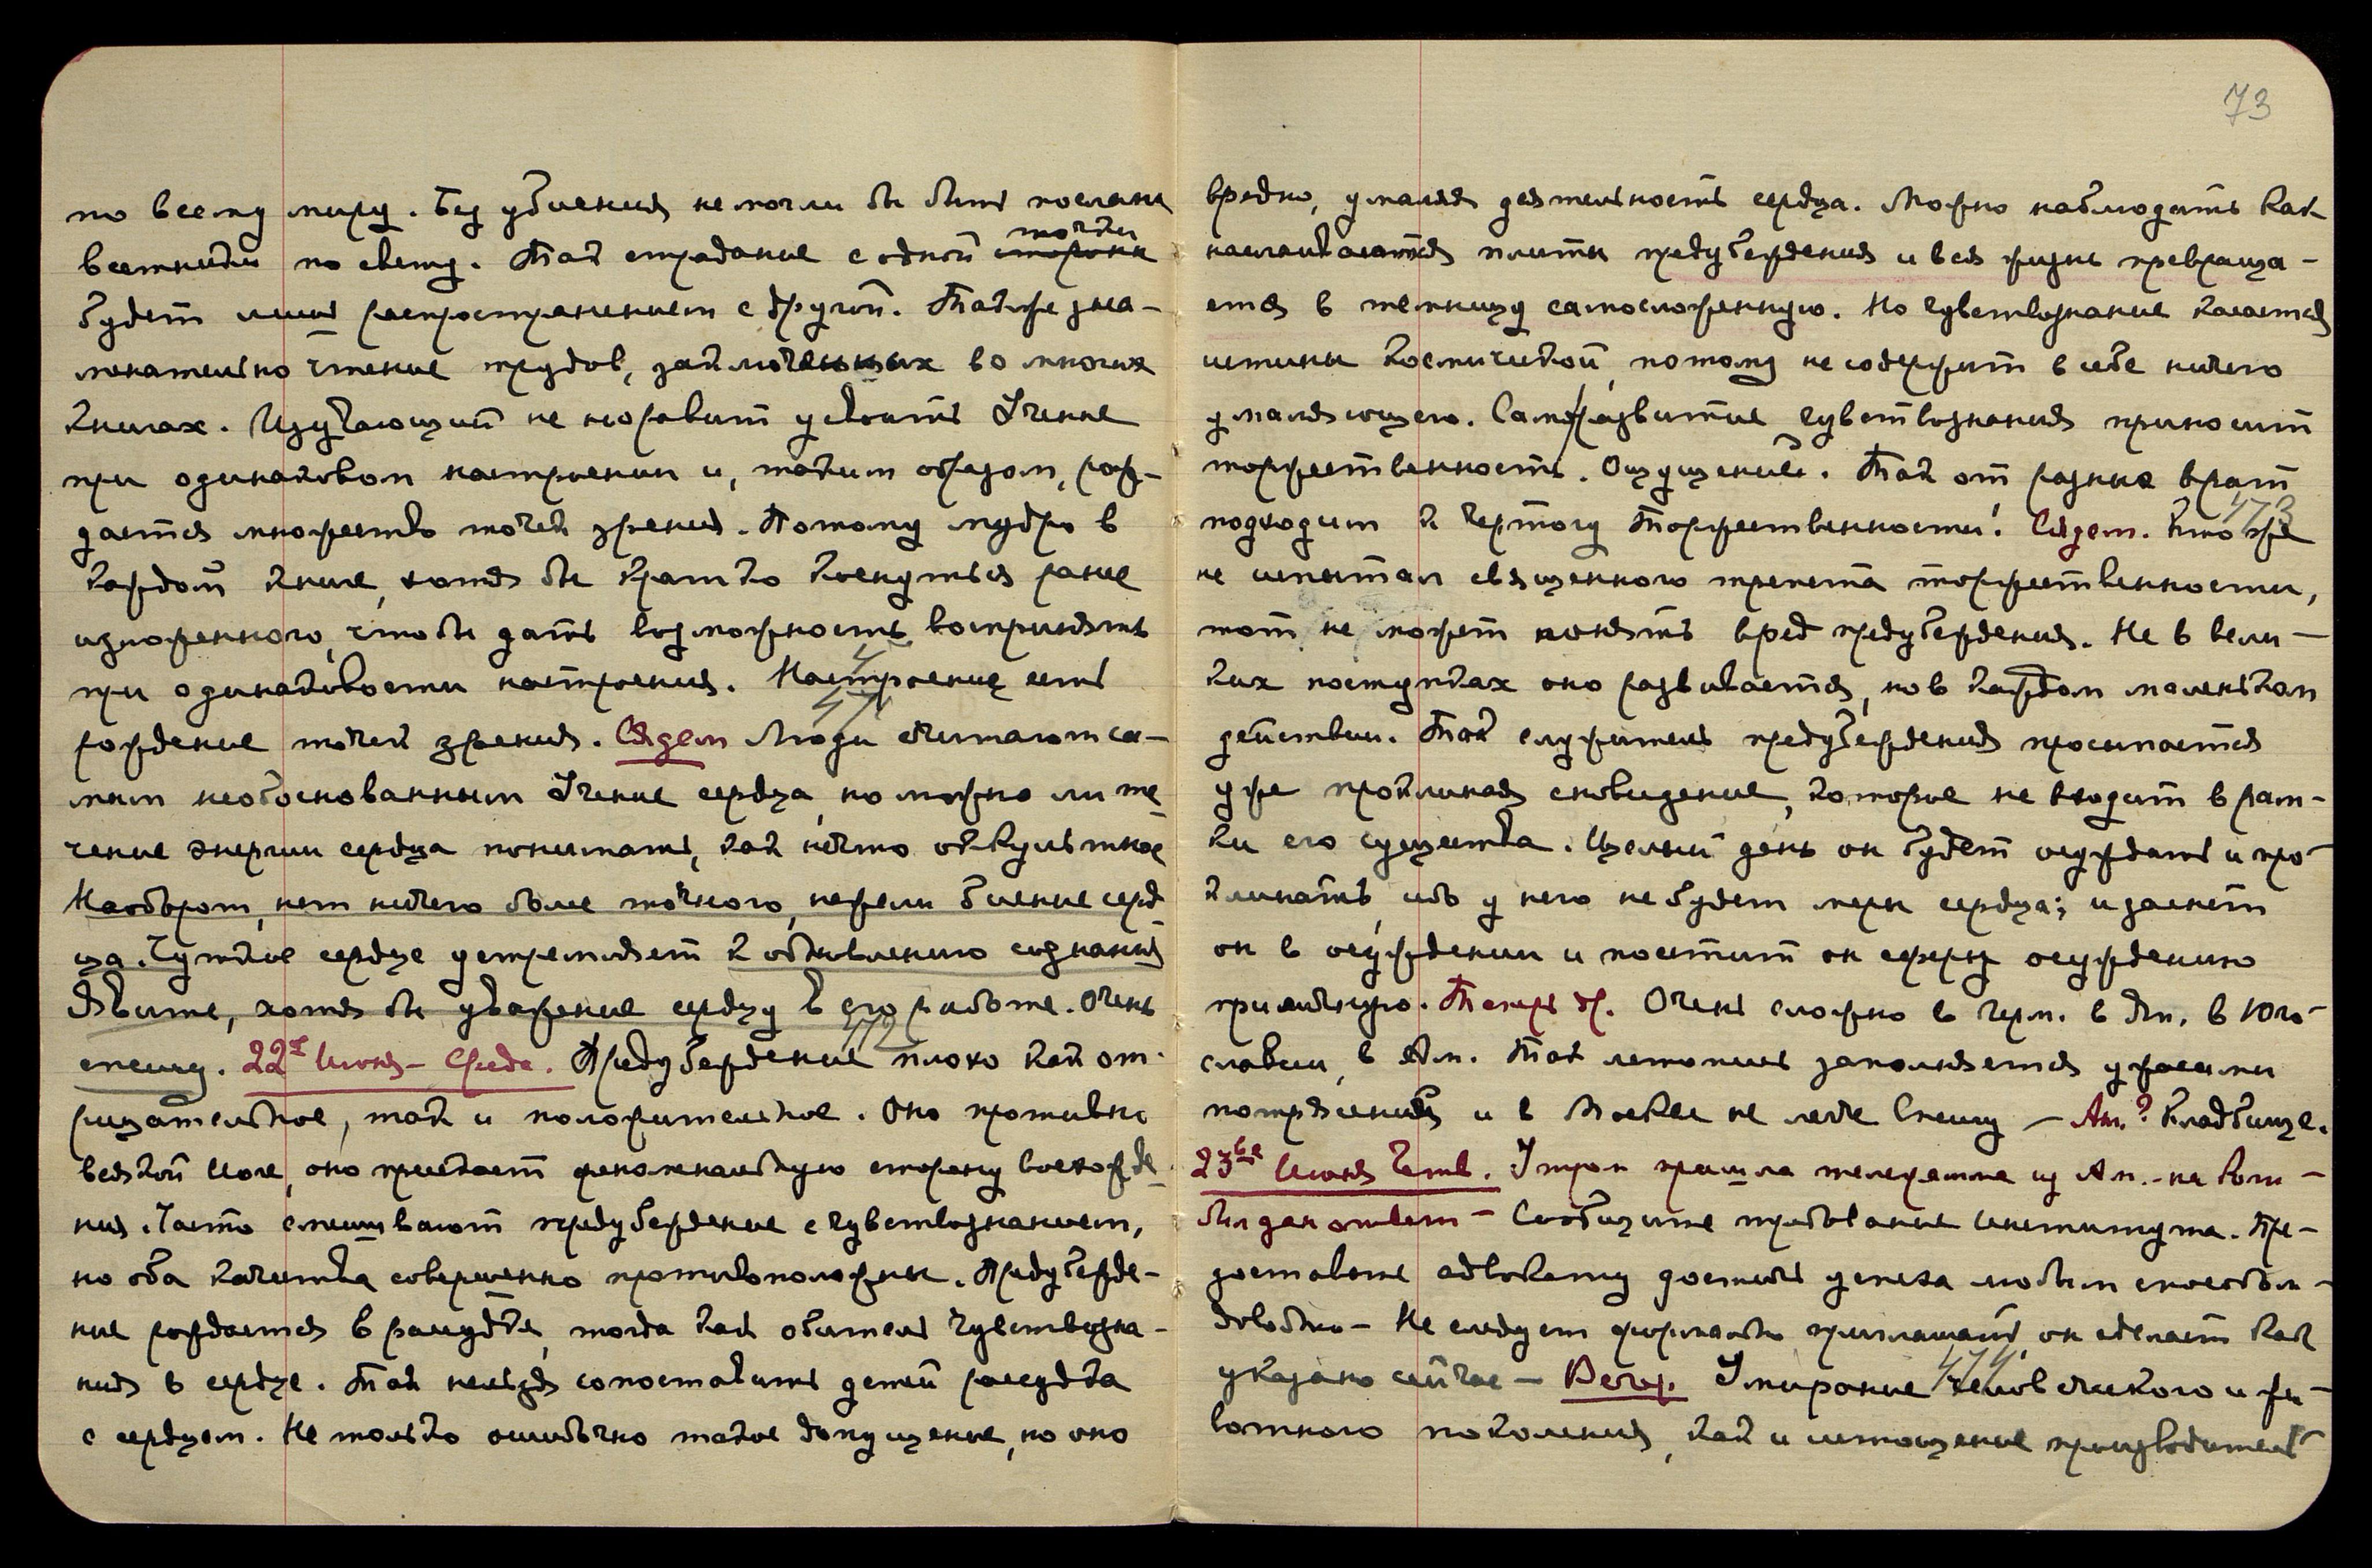 по всему миру. Без убиения не могли бы быть посланы
точки
вестники по свету. Так страдание с одной стороны
будет лишь распространением с другой. Также зна-
менательно чтение трудов, заключенных во многих
книгах. Изучающий не норовит усвоить Учение
при одинаковом настроении и, таким образом, рож-
дается множество точек зрения. Потому мудро в
каждой книге, хотя бы кратко коснуться ранее
изложенного, чтобы дать возможность воспринять
при одинаковости настроения. Настроение есть
471
рождение точек зрения. Сядем Люди считают са-
мым необоснованным Учение сердца, но можно ли те-
чение энергии сердца понимать, как нечто оккультное
Наоборот, нет ничего более точного, нежели биение серд-
ца. Чуткое сердце устремляет к обновлению сознания
Явите, хотя бы уважение сердцу в его работе. Очень
472
спешу. 22е Июня – Среда. Предубеждение плохо как от-
рицательное, так и положительное. Оно противно
всякой Иоге, оно пресекает феноменальную сторону восхожде-
ния. Часто смешивают предубеждение с чувствознанием,
но оба качества совершенно противоположны. Предубежде-
ние рождается в рассудке, тогда как обитель чувствозна-
ния в сердце. Так нельзя сопоставить детей рассудка
с сердцем. Не только ошибочно такое допущение, но оно
73
вредно, умаляя деятельность сердца. Можно наблюдать как
наслаиваются плиты предубеждения и вся жизнь превраща-
ется в темницу самосложенную. Но чувствознание касается
истины космической, потому не содержит в себе ничего
умаляющего. Само развитие чувствознания приносит
торжественность. Ощущение. Так от разных врат
473
подходим к чертогу Торжественности. Сядем. Кто же
не испытал священного трепета торжественности,
тот не может понять вред предубеждения. Не в вели-
ких поступках оно развивается, но в каждом маленьком
действии. Так служитель предубеждения просыпается
уже проклиная сновидение, которое не входит в рам-
ки его существа. Целый день он будет осуждать и про-
клинать, ибо у него не будет меры сердца; и заснет
он в осуждении и посетит он сферу осуждению
присущую. Теперь др. Очень сложно в Герм. в Яп. в Юго-
славии, в Ам. Так летопись заполняется ужасами
потрясений и в Москве не легче Спешу – Ам.? Кладбище.
23ье Июня Четв. Утром пришла телеграмма из Ам.
был дан ответ – Сообщите требование Института. Пре-
доставьте адвокату достичь успеха любым способом –
Довольно – Не следует формально приглашать, он сделает как
474
указано сейчас – Вечер. Умирание человеческого и жи-
вотного поколения, как и истощение производитель-